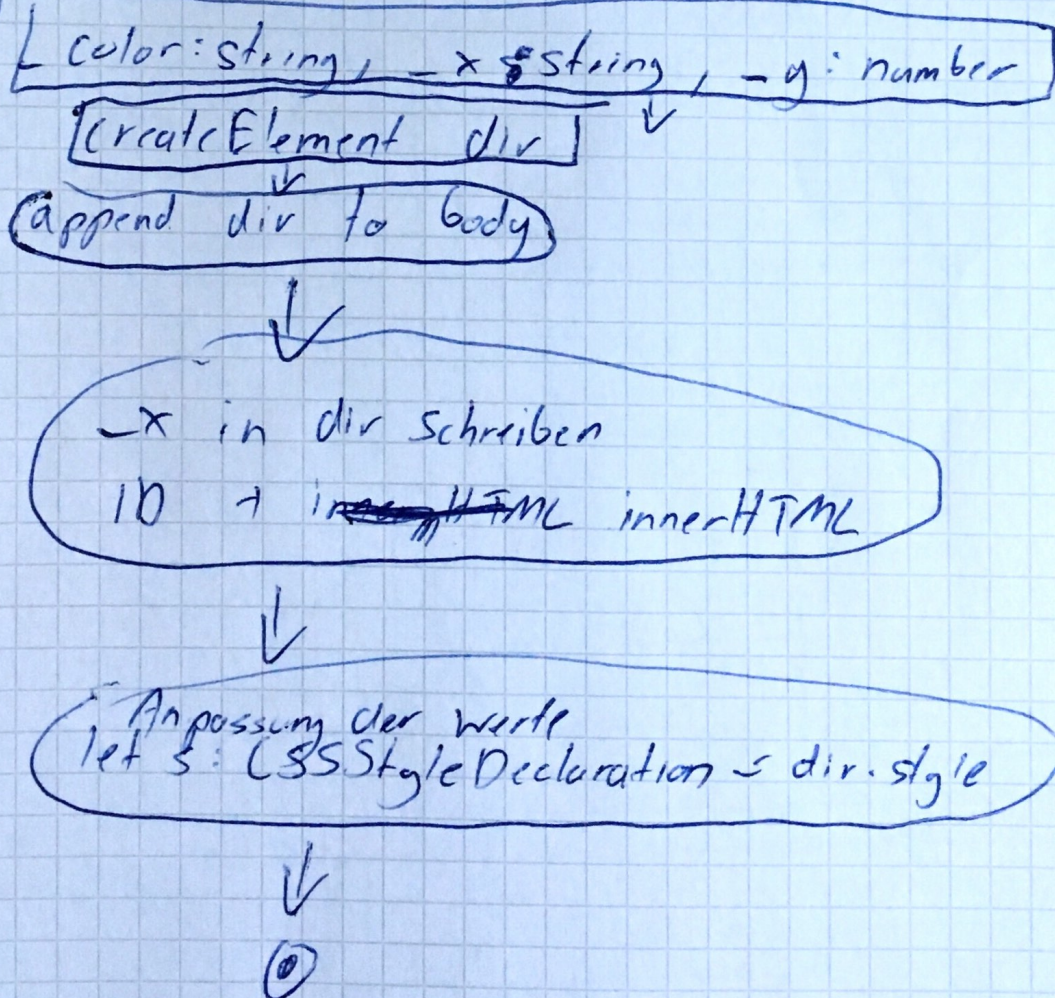 color: string, _x : string, _y : number
createElement div
append div to body
_x in div schreiben
ID + innerHTML innerHTML
Anpassung der Werte
let s : CSSStyleDeclaration = div.style